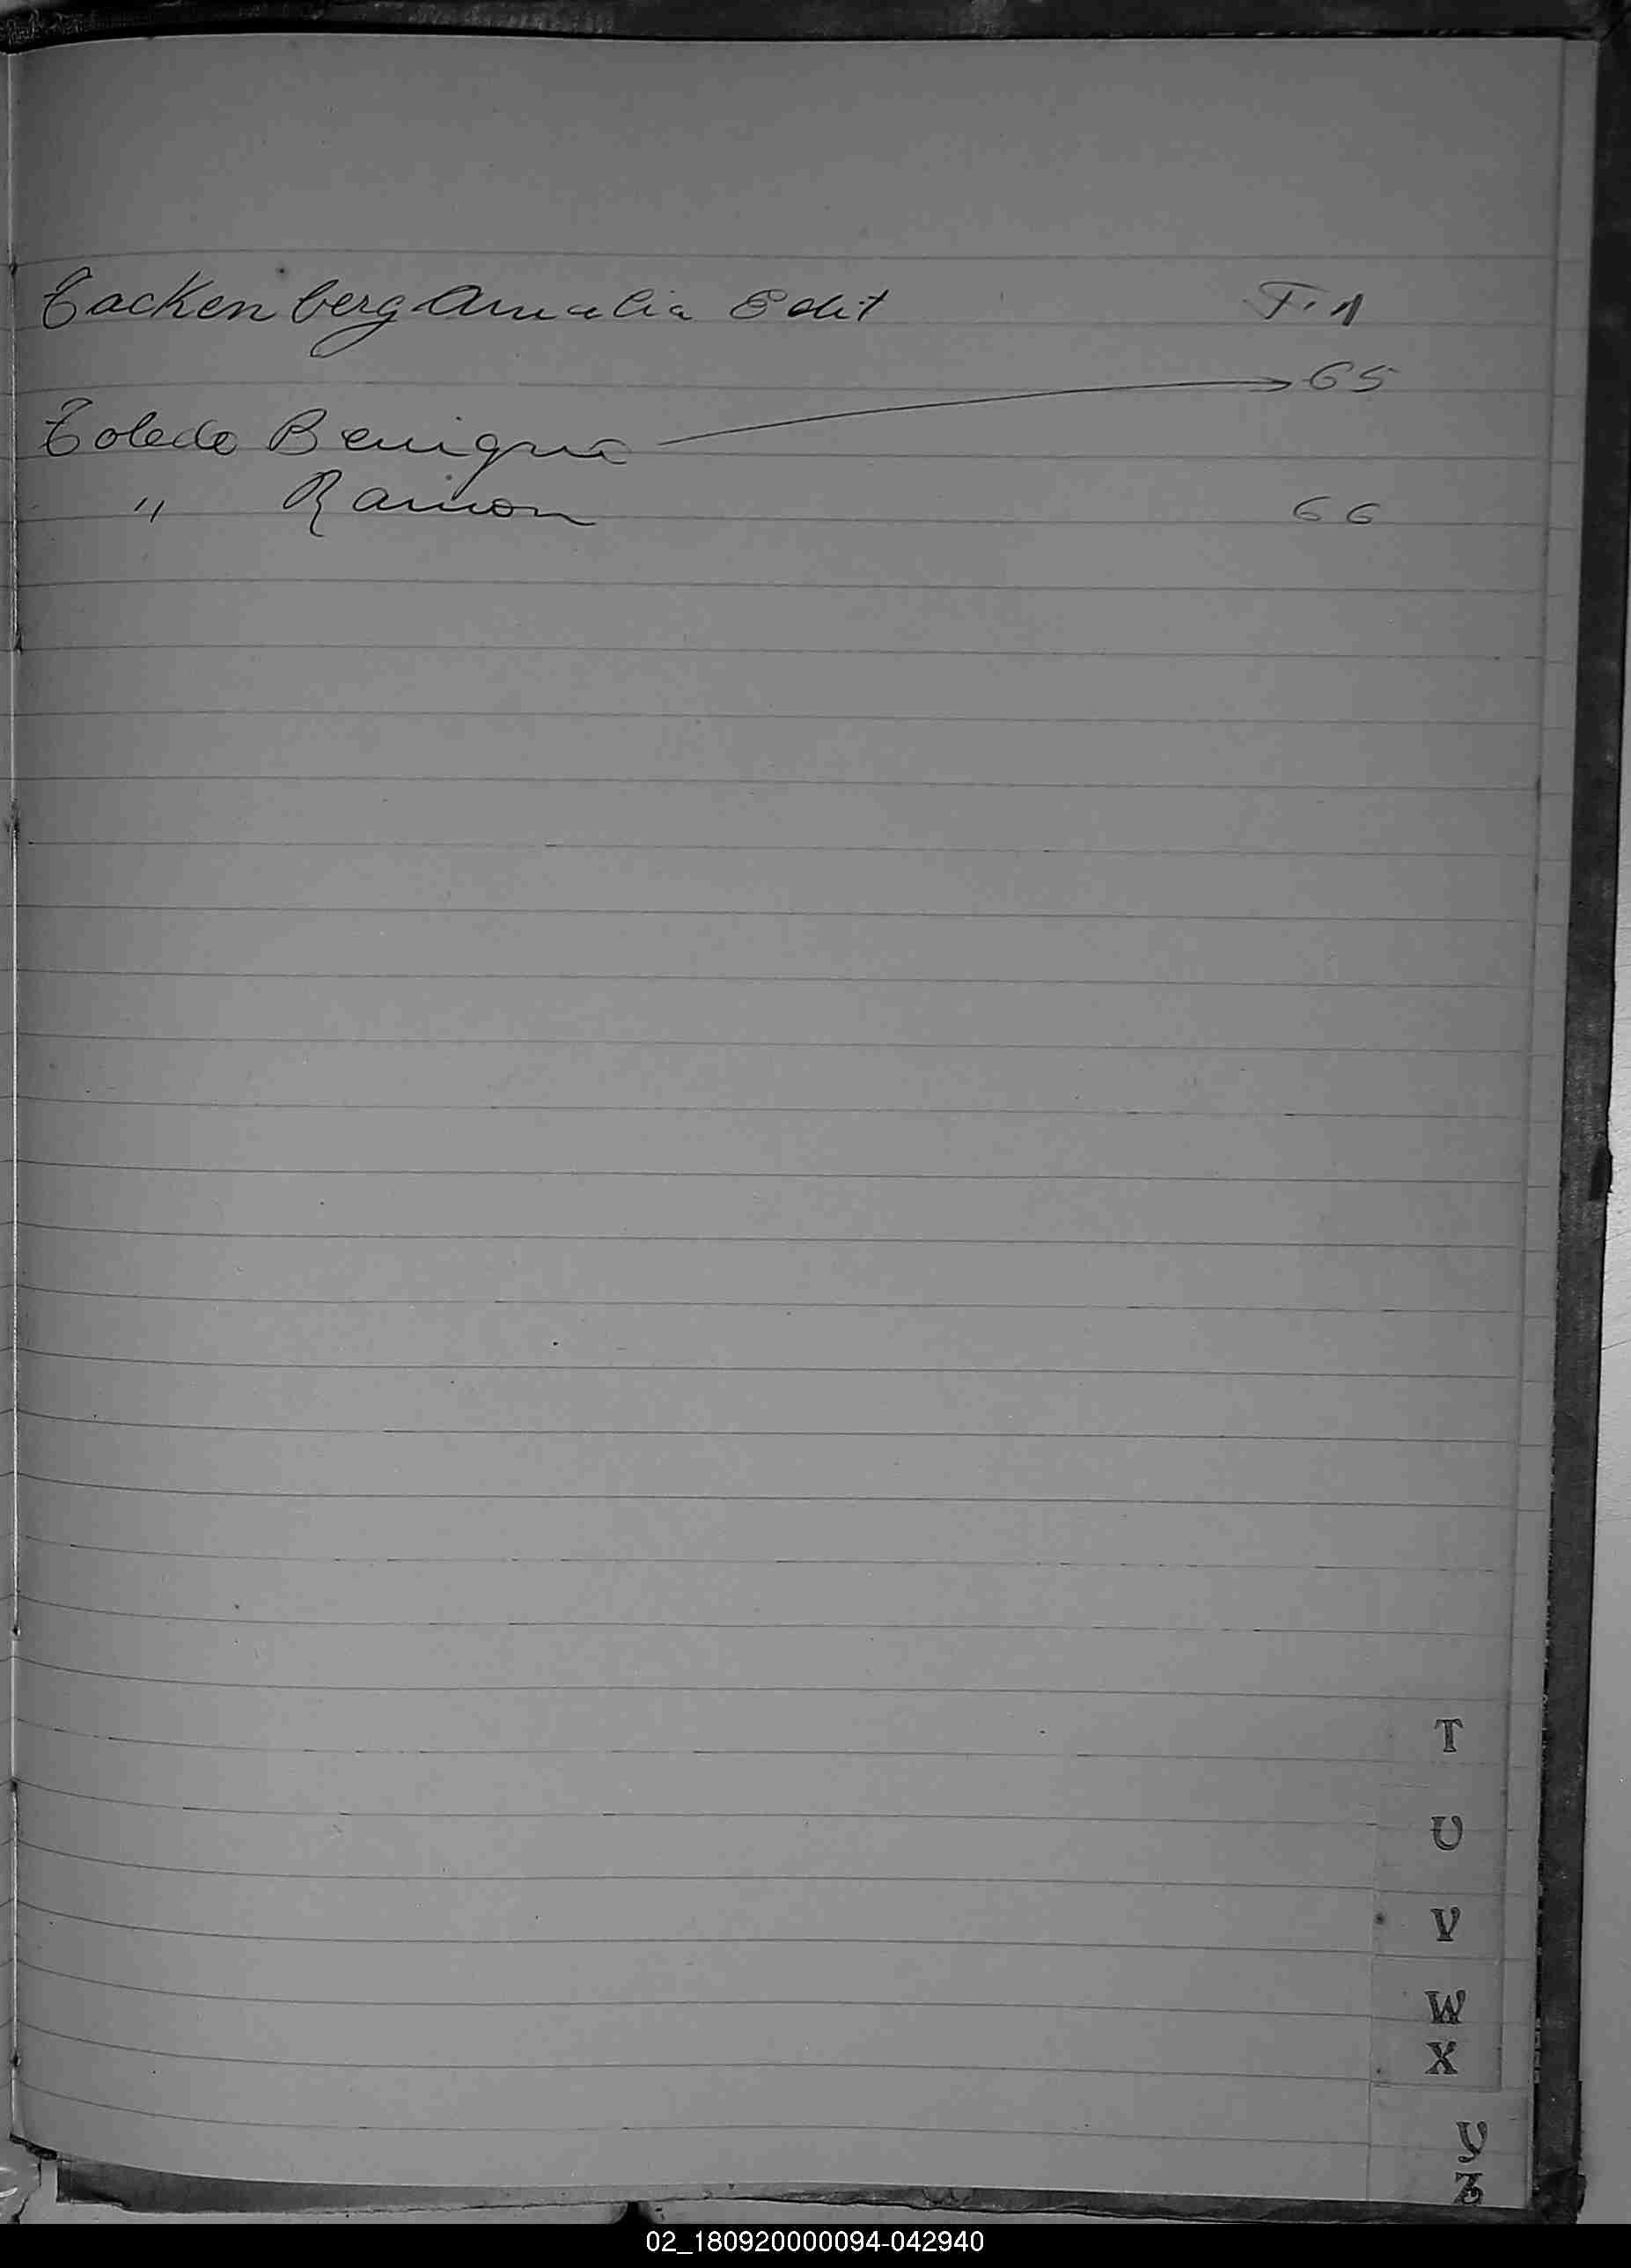 Tackenberg Amalia Edit F. 1
65
Toledo Benigna
" Ramon 66
T
U
V
W
X
Y
Z
02_180920000094-042940